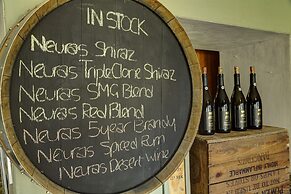 IN STOCK
Neuras Shiraz
Neuras Triple Clone Shiraz
Neuras SMG Blend
Neuras Red Blend
Neuras 5year Brandy
Neuras Spiced Rum
Neuras Desert Wine